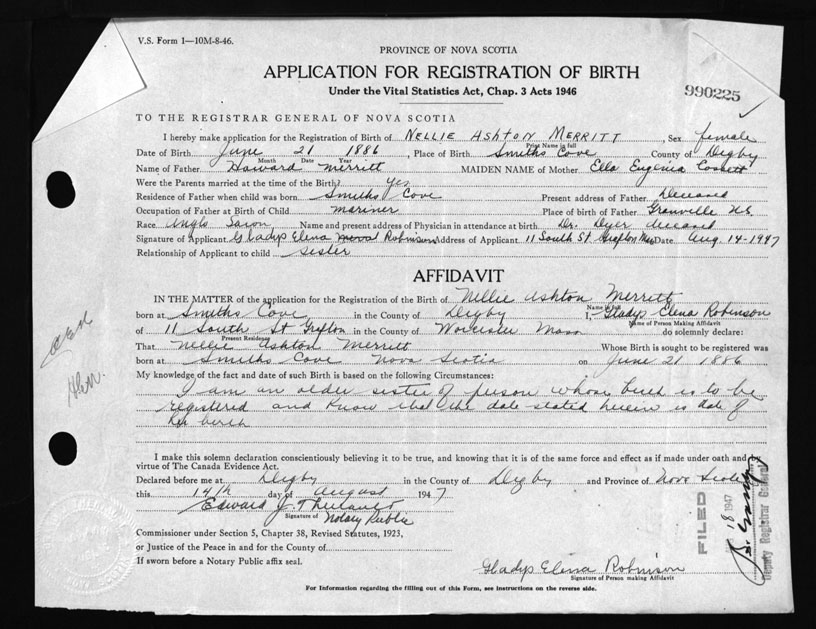 V.S. Form 1—10M-8-46.
PROVINCE OF NOVA SCOTIA
APPLICATION FOR REGISTRATION OF BIRTH
Under the Vital Statistics Act, Chap. 3 Acts 1946
990225
TO THE REGISTRAR GENERAL OF NOVA SCOTIA
I hereby make application for the Registration of Birth of NELLIE ASHTON MERRITT, Sex female
Print Name in full
Date of Birth June 21 1886, Place of Birth Smiths Cove County of Digby
Month Date Year
Name of Father Howard Merritt MAIDEN NAME of Mother Ella Euginia Cossett
Were the Parents married at the time of the Birth? Yes
Residence of Father when child was born Smiths Cove Present address of Father Deceased
Occupation of Father at Birth of Child mariner Place of birth of Father Granville N.S.
Race Anglo Saxon Name and present address of Physician in attendance at birth Dr. Dyer deceased
Signature of Applicant Gladys Elena Robinson Address of Applicant 11 South St. Grafton Mass Date Aug. 14-1947
Relationship of Applicant to child sister
AFFIDAVIT
IN THE MATTER of the application for the Registration of the Birth of Nellie Ashton Merritt
Name in full
born at Smiths Cove in the County of Digby I, Gladys Elena Robinson
Name of Person Making Affidavit
of 11 South St Grafton in the County of Worcester Mass do solemnly declare:
Present Residence
That Nellie Ashton Merritt Whose Birth is sought to be registered was
born at Smiths Cove Nova Scotia on June 21 1886
My knowledge of the fact and date of such Birth is based on the following Circumstances:
I am an older sister of person whose birth is to be
registered and know that the date stated herein is date of
her birth
I make this solemn declaration conscientiously believing it to be true, and knowing that it is of the same force and effect as if made under oath and by
virtue of The Canada Evidence Act.
Declared before me at Digby in the County of Digby and Province of Nova Scotia
this 14th day of August 1947
Edward J. Theriault
Signature of Notary Public
Commissioner under Section 5, Chapter 38, Revised Statutes, 1923,
or Justice of the Peace in and for the County of
If sworn before a Notary Public affix seal.
Gladys Elena Robinson
Signature of Person making Affidavit
For Information regarding the filling out of this Form, see instructions on the reverse side.
FILED
18 1947
Deputy Registrar General